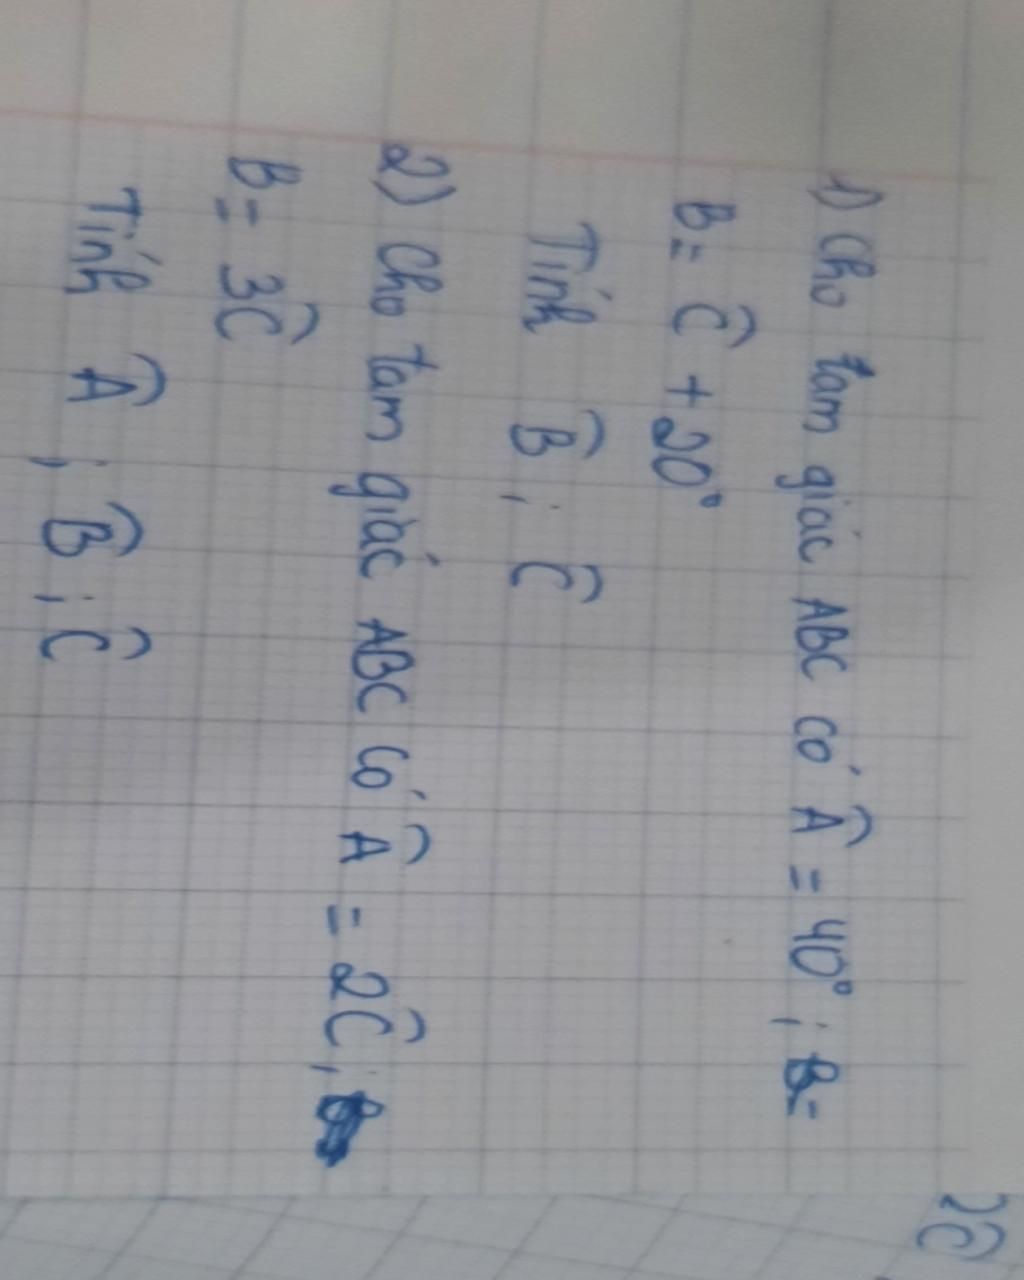 2Ĉ
1) Cho tam giác ABC có Â = 40°; B =
B = Ĉ + 20°
Tính B̂ ; Ĉ
2) Cho tam giác ABC có Â = 2Ĉ;
B = 3Ĉ
Tính Â ; B̂ ; Ĉ